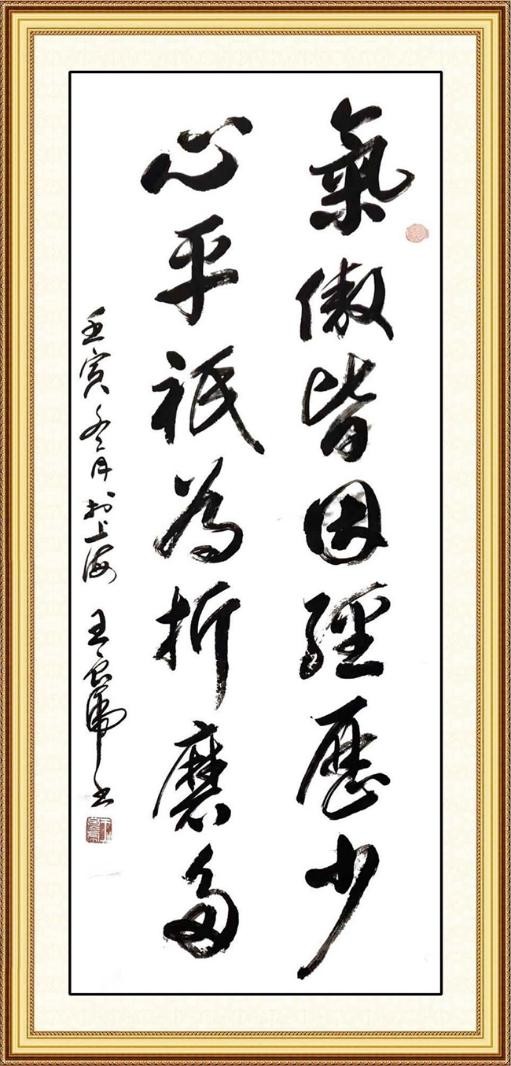 氣傲皆因經歷少
心平祇為折磨多
壬寅冬月於上海 王良虎书